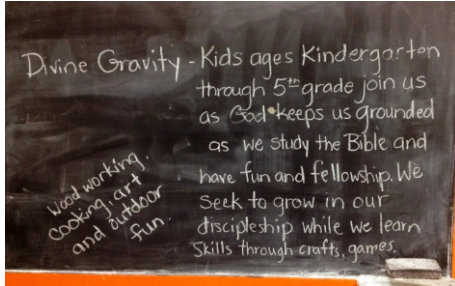 Divine Gravity - Kids ages Kindergarten
through 5th grade join us
as God keeps us grounded
as we study the Bible and
have fun and fellowship. We
seek to grow in our
discipleship while we learn
skills through crafts, games,
wood working,
cooking, art
and outdoor
fun.